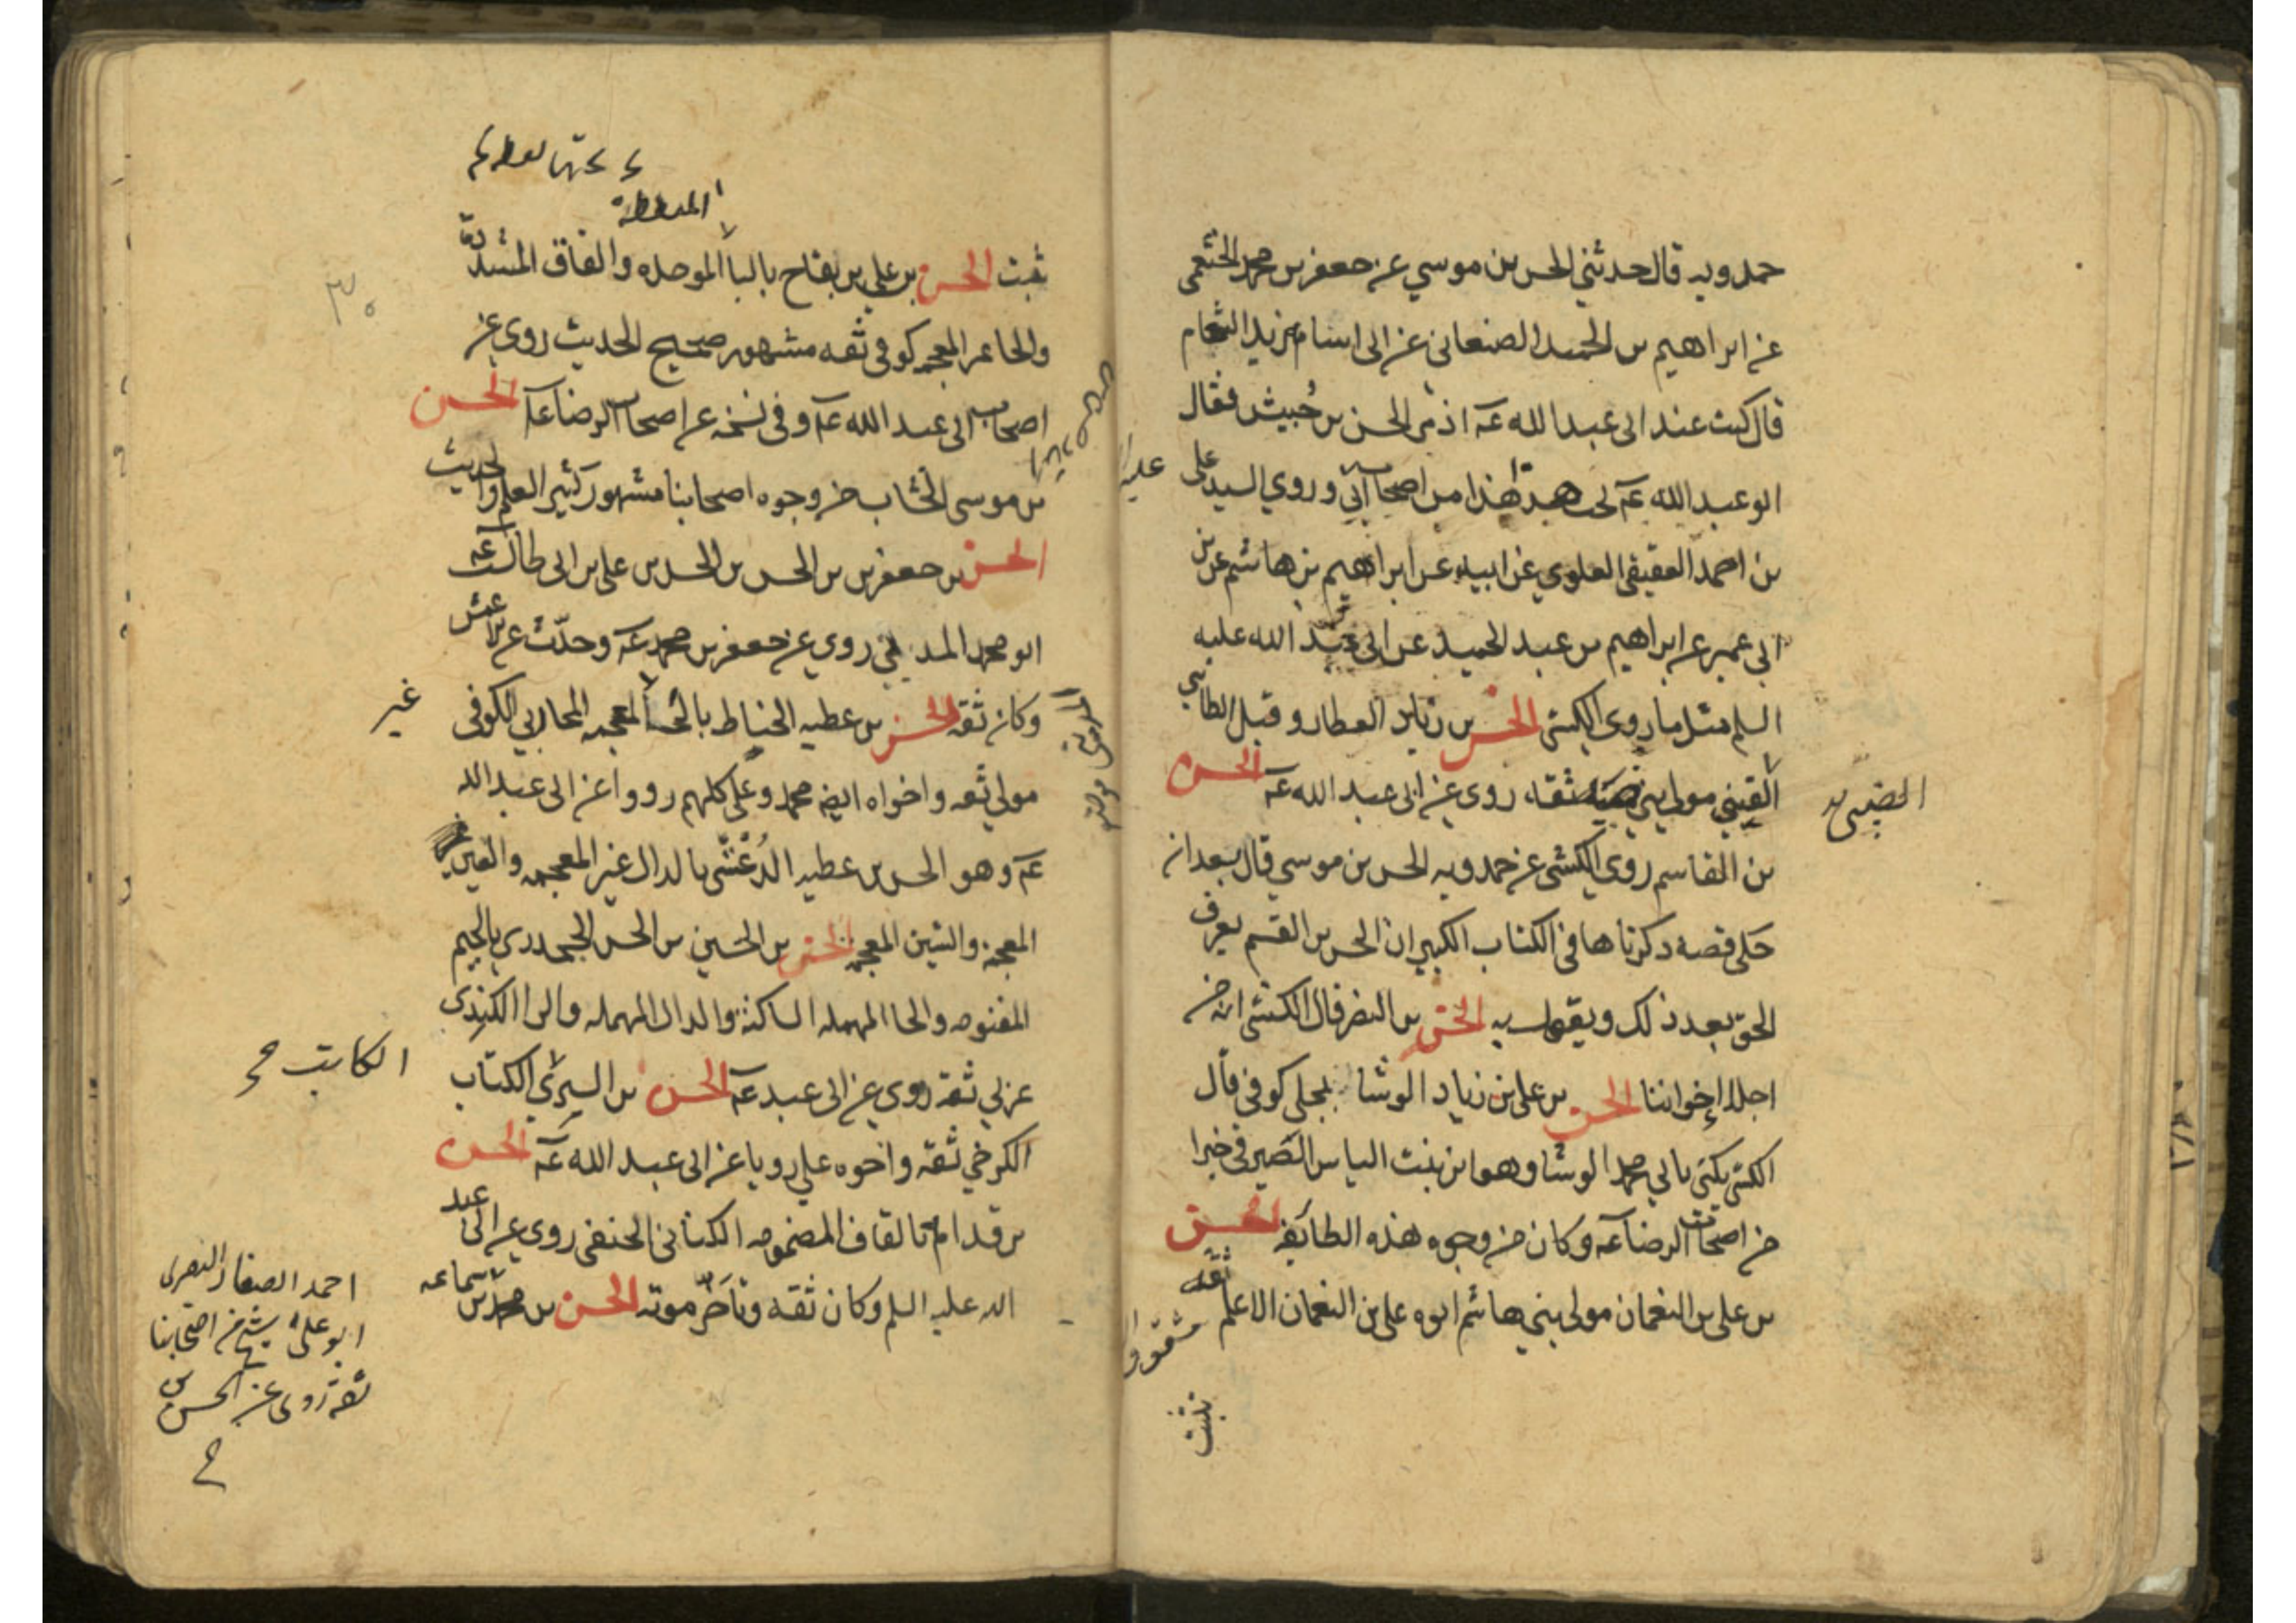 حمدويه قال حدثني الحسن بن موسي عن جعفر بن محمد الخثعمي
عن ابراهيم بن الحميد الصنعاني عن ابي اسامه زيد الشحام
قال كنت عند ابي عبد الله عه اذ مر الحسن بن حُبيش فقال
ابو عبد الله عه تحب هذا هذا من اصحاب ابي و روي السيد علي
بن احمد العقيقي العلوي عن ابيه عن ابراهيم بن هاشم عن بن
ابي عمير عن ابراهيم بن عبد الحميد عن ابي عبد الله عليه
السلم مثل ما روي الكشي الحسن بن زياد العطار و قيل الطائي
مولي بني ضبه ثقه روي عن ابي عبد الله عه الحسن
الضبي
بن القاسم روي الكشي عن حمدويه الحسن بن موسي قال بعد ان
حكي قصه ذكرناها في الكتاب الكبير ان الحسن بن القسم يعرف
الحق بعد ذلك و يقول به الحسن بن النضر قال الكشي انه من
اجلا إخواننا الحسن بن علي بن زياد الوشا بجلي كوفي قال
الكشي يكني بابي محمد الوشا وهو ابن بنت الياس الصيرفي خيرا
من اصحاب الرضا عه و كان من وجوه هذه الطايفه الحسن
بن علي بن النعمان مولي بني هاشم ابوه علي بن النعمان الاعلم ثقه
ثبت
المنقطة
ثبت الحسن بن علي بن بقاح بالبا الموحده و القاف المشددة
والحا غير المعجمه كوفي ثقه مشهور صحيح الحديث روي عن
اصحاب ابي عبد الله عه و في نسخه عن اصحاب الرضا عه الحسن
بن موسي الخشاب من وجوه اصحابنا مشهور كثير العلم و الحديث
الحسن بن جعفر بن الحسن بن الحسن بن علي بن ابي طالب عه
ابو محمد المديني روي عن جعفر بن محمد عه و حدّث عن الاعمش
و كان ثقه الحسن بن عطيه الحناط بالحا المعجمه المحاربي الكوفي
غير
مولي ثقه و اخواه ايضه محمد و علي كلهم رووا عن ابي عبد الله
عه و هو الحسن بن عطيه الدُغشي بالدال غير المعجمه و الغين
المعجمه والشين المعجمه الحسن بن الحسين بن الحسن الجحدري بالجيم
المفتوحه و الحا المهمله الساكنة والدال المهمله والرا الكندي
عربي ثقة روي عن ابي عبد عه الحسن بن السري الكتاب
الكاتب
الكرخي ثقه و اخوه علي رويا عن ابي عبد الله عه الحسن
بن قدامه بالقاف المضمومه الكناني الحنفي روي عن ابي عبد
الله عليه السلم و كان ثقه و تأخّر موته الحسن بن محمد بن سماعه
احمد الصفار البصري
ابو علي شيخ من اصحابنا
ثقة روي عن الحسن بن